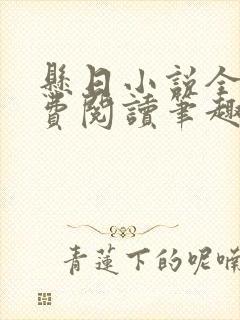 懸日小說全
費閱讀筆趣
青蓮下的呢喃